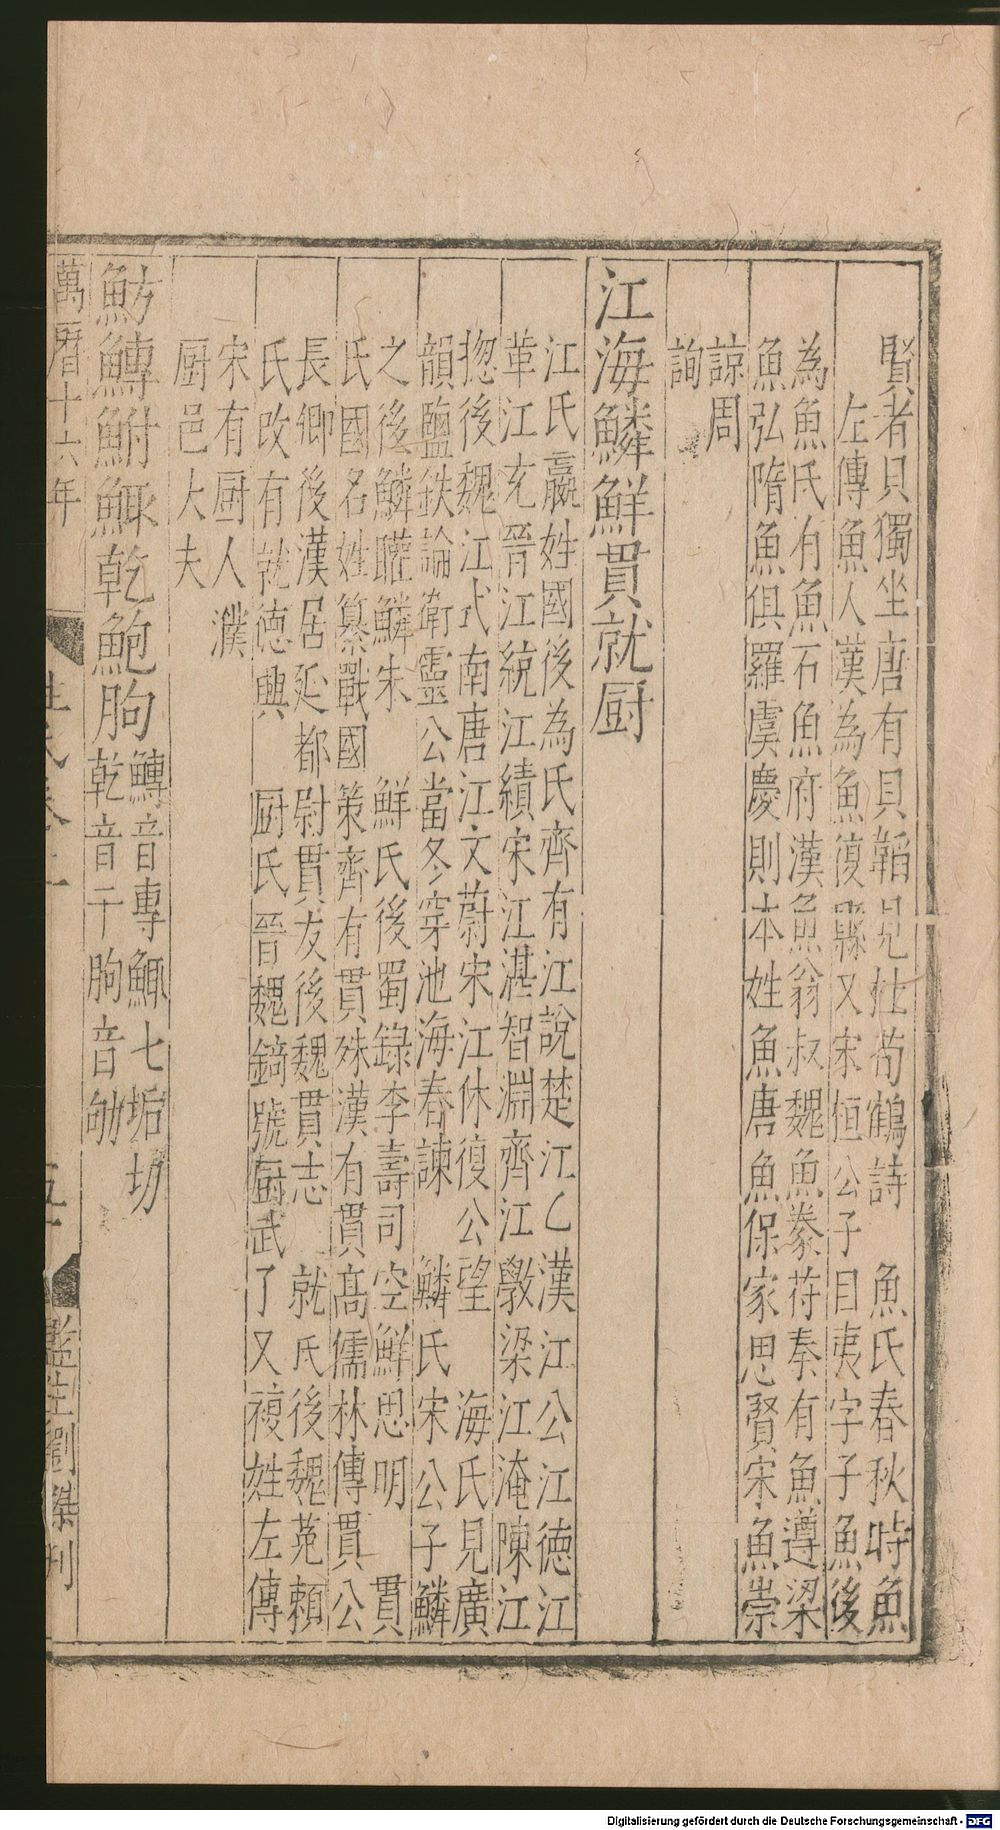 賢者貝獨坐唐有貝韜見杜荀鶴詩　魚氏春秋時魚
左傳魚人漢為魚復縣又宋恒公子目夷字子魚後
為魚氏有魚石魚府漢魚翁叔魏魚豢苻秦有魚遵梁
魚弘隋魚俱羅虞慶則本姓魚唐魚保家思賢宋魚崇
諒周
詢
江海鱗鮮貫就厨
江氏嬴姓國後為氏齊有江說楚江乙漢江公江德江
革江充晉江統江績宋江湛智淵齊江斆梁江淹陳江
揔後魏江式南唐江文蔚宋江休復公望　海氏見廣
韻鹽鉄論衛靈公當冬穿池海春諫　鱗氏宋公子鱗
之後鱗矔鱗朱　鮮氏後蜀錄李壽司空鮮思明　貫
氏國名姓纂戰國策齊有貫殊漢有貫髙儒林傳貫公
長卿後漢居延都尉貫友後魏貫志　就氏後魏菟頼
氏改有就德興　厨氏晉魏錡號厨武了又複姓左傳
宋有厨人濮
厨邑大夫
魴鱄鮒鯫乾鮑朐
鱄音專鯫七垢切
乾音干朐音劬
萬曆十六年
監生劉傑刊
Digitalisierung gefördert durch die Deutsche Forschungsgemeinschaft - DFG